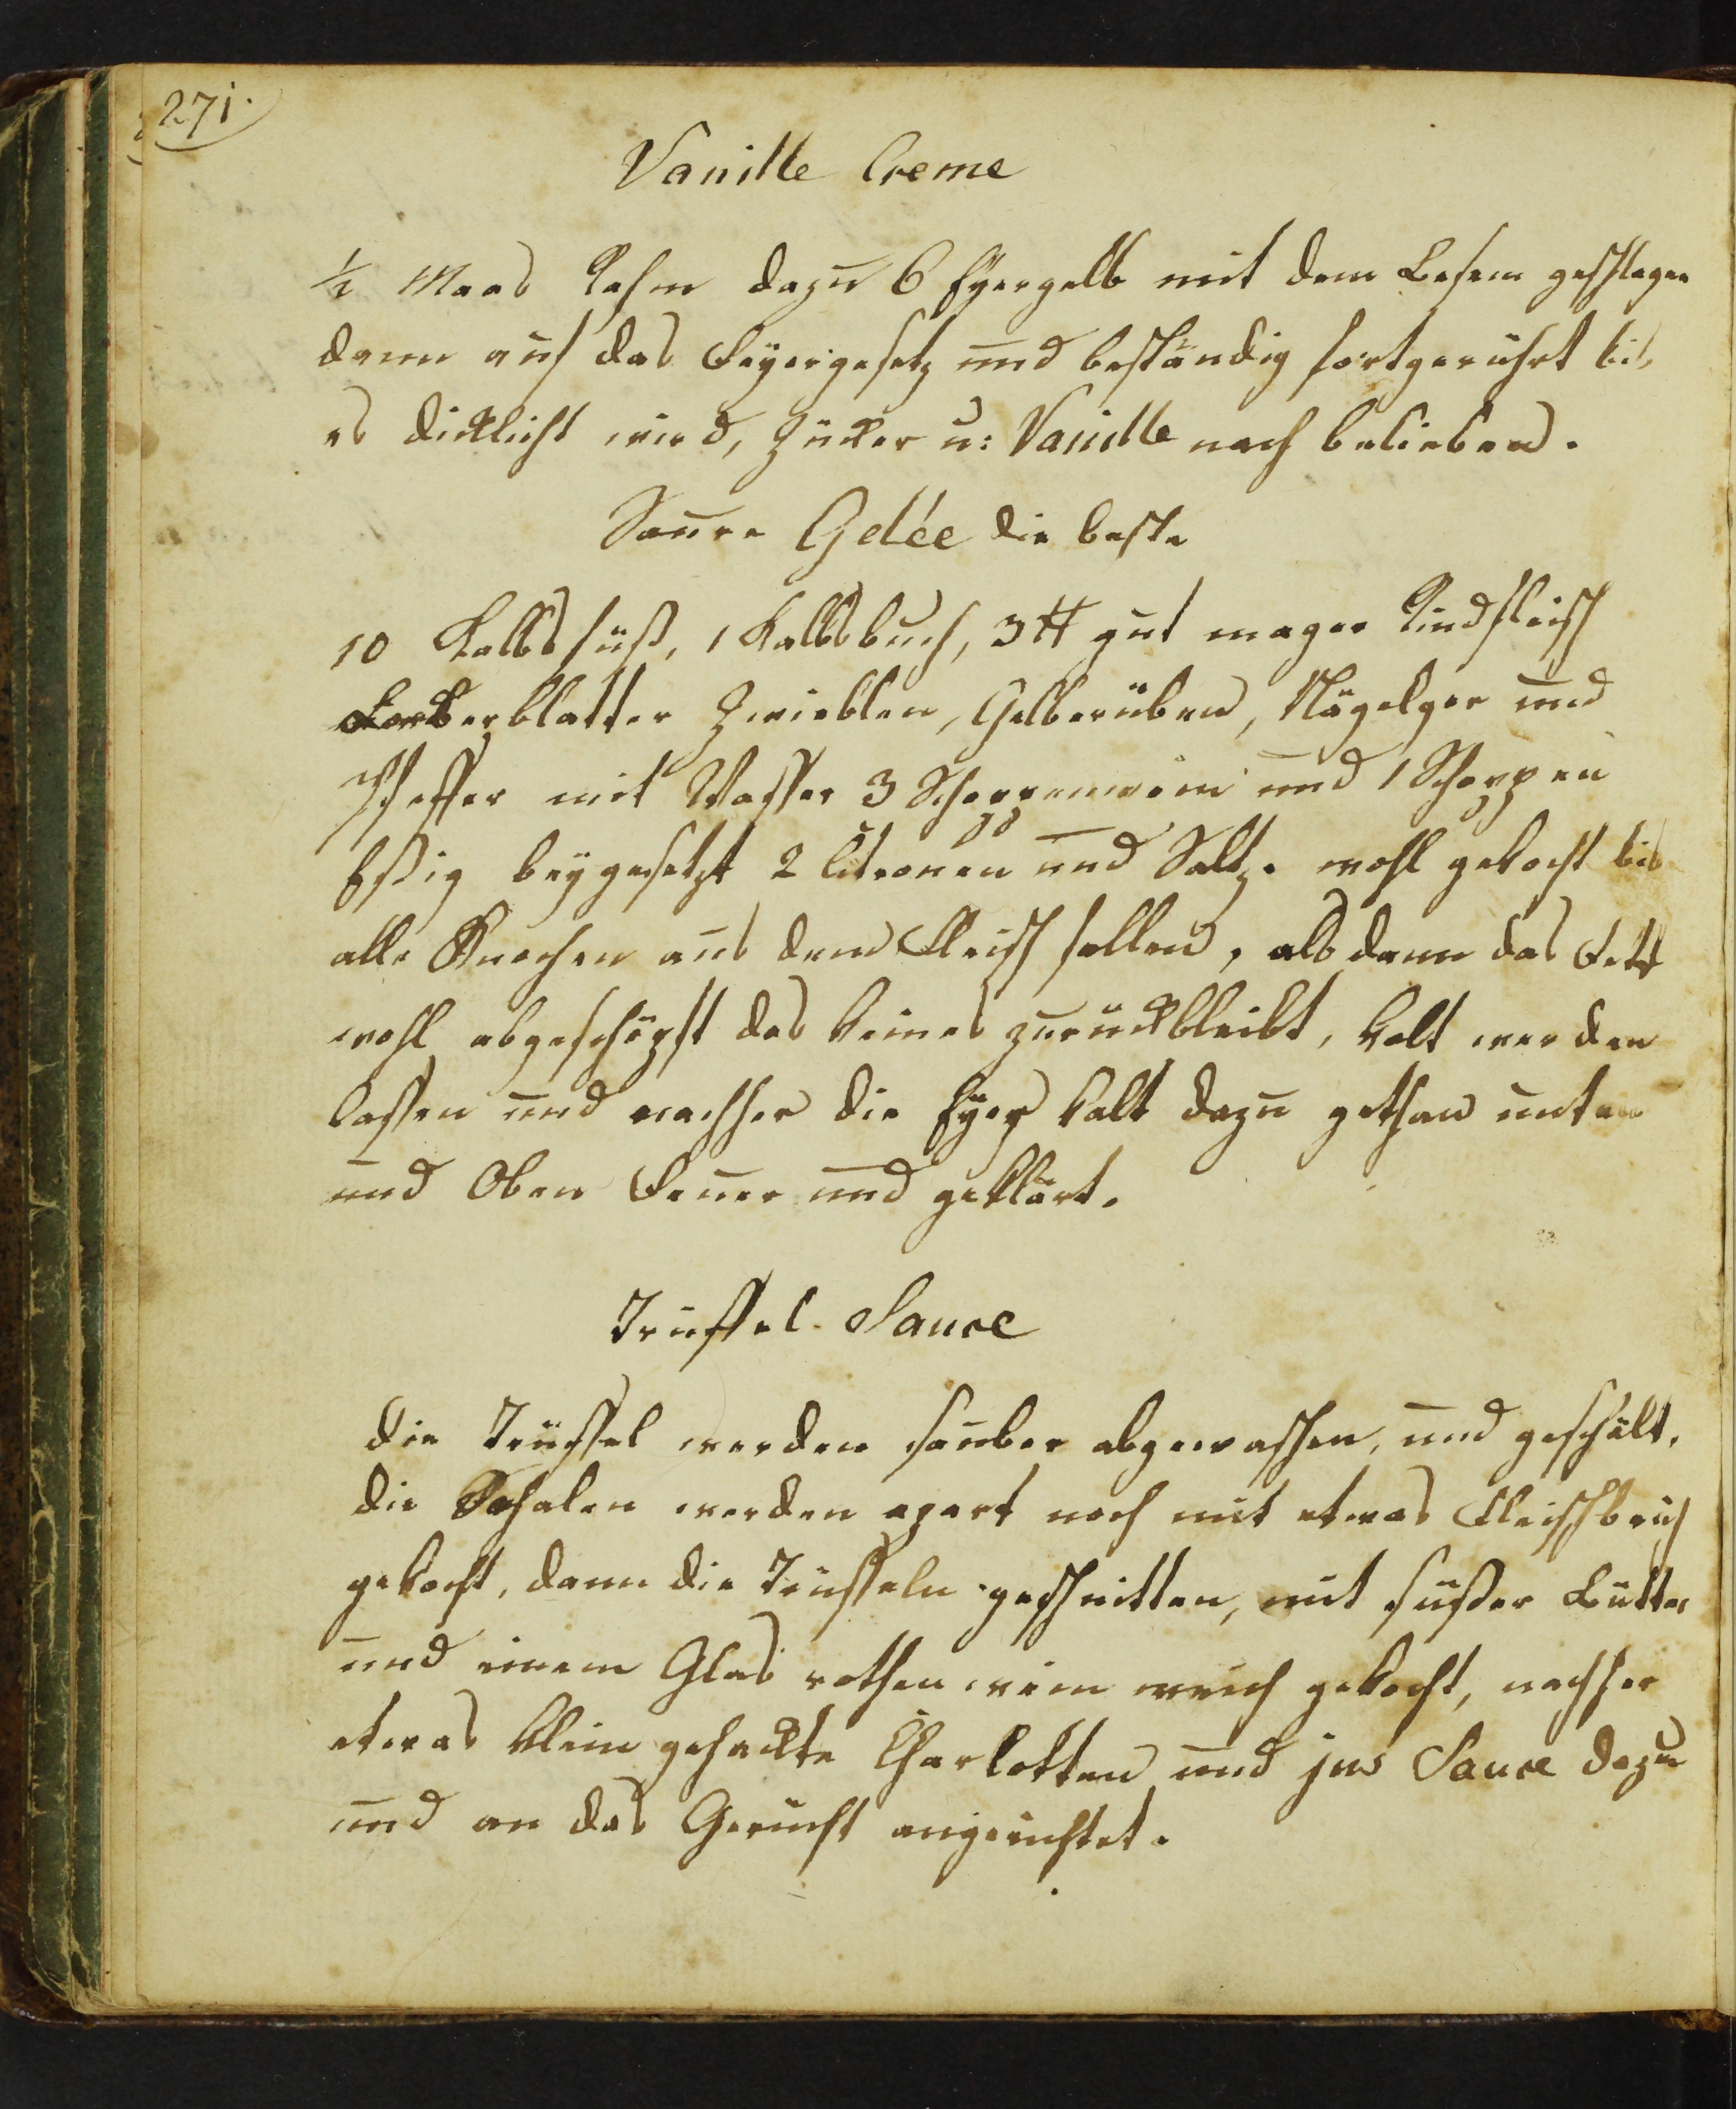 271.
Vanille Creme
½ Maas Rahm dazu 6 Eyergelb mit dem Besem geschlagen
dann auf das Feyer gesetz und beständig fortgerührt bis
es dicklicht wird, Zucker u: Vanille nach belieben.
Saure Gelée die beste
10 Kalbsfüß, 1 Kalbsbuch, 3 ℔ gut mager Rindfleisch
Lorberblatter Zwieblen, Gelberüben, Nägelger und
Pfeffer mit Wasser 3 Schoppenwein und 1 Schoppen
Eßig beygesetzt 2 Citronen und Saltz. wohl gekocht bis
alle Knochen aus dem Fleisch fallen, als dann das Fett
wohl abgeschöpft das keines zurückbleibt, kalt werden
lassen und nachher die Eyer kalt dazu gethan unten
und Oben Feuer und geklärt.
Trüffel-Sauce
die Trüffel werden sauber abgewaschen, und geschält.
die Schalen werden apart noch mit etwas Fleischbrüh
gekocht, dann die Trüffeln geschnitten, mit süßer Butter
und einem Glas rothen wein weich gekocht, nachher
etwas klein gehackte Charlotten und jus Sauce dazu
und an das Gericht angerichtet.